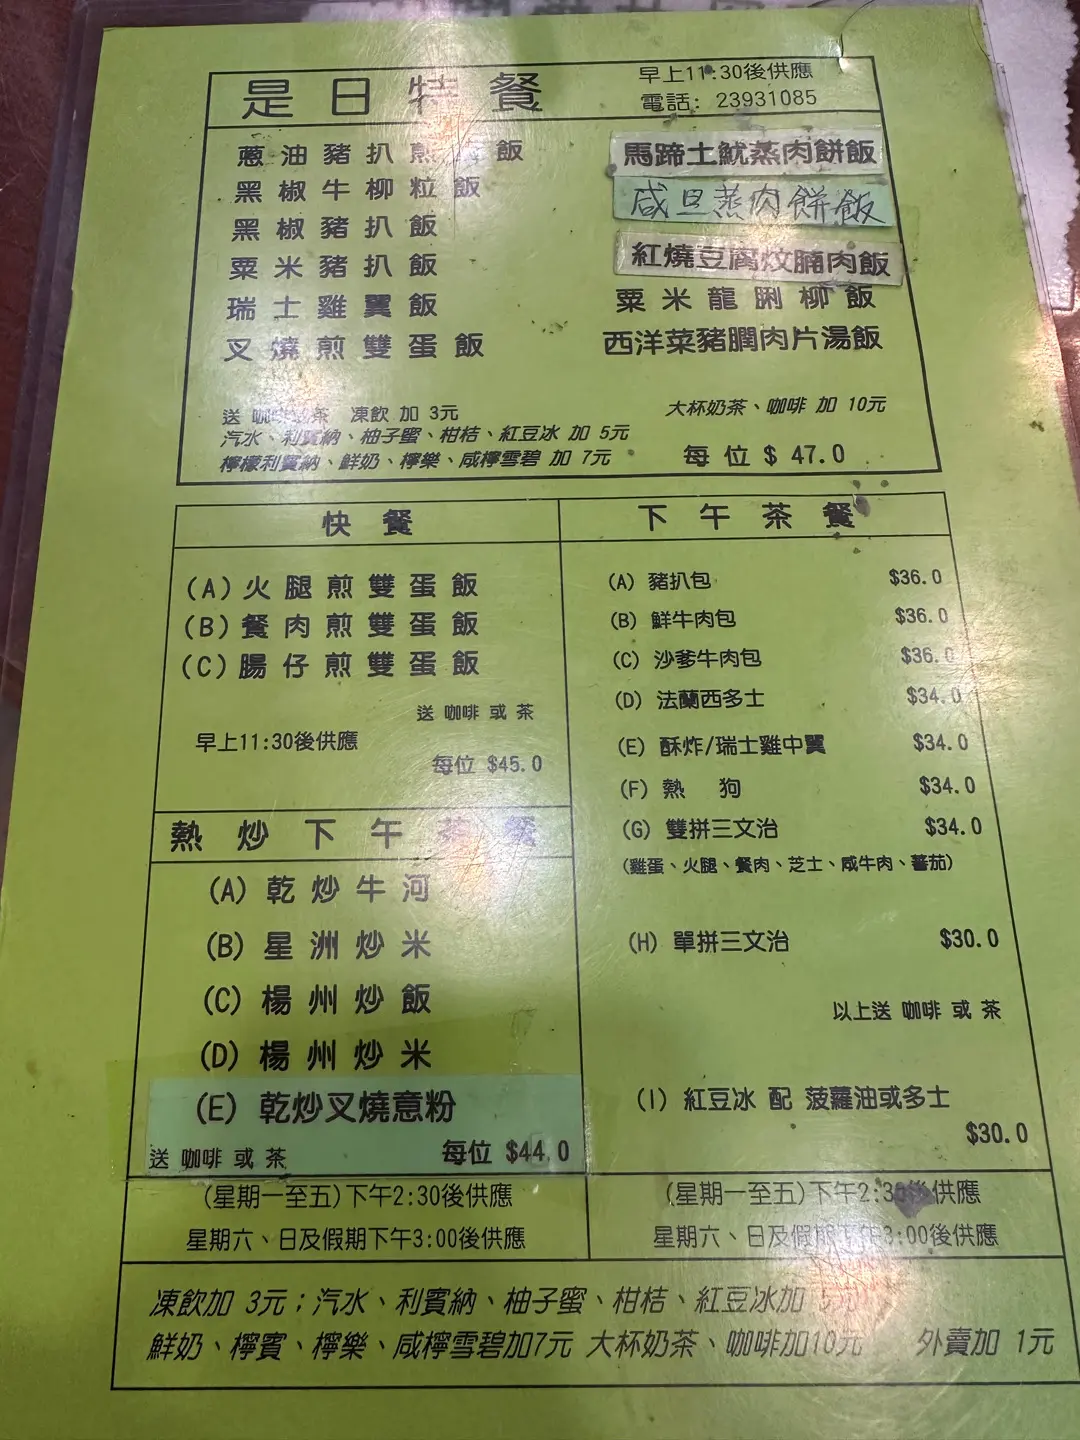 是日特餐
早上11:30後供應
電話: 23931085
蔥油豬扒煎 飯
黑椒牛柳粒飯
黑椒豬扒飯
粟米豬扒飯
瑞士雞翼飯
叉燒煎雙蛋飯
馬蹄土魷蒸肉餅飯
咸旦蒸肉餅飯
紅燒豆腐炆腩肉飯
粟米龍脷柳飯
西洋菜豬膶肉片湯飯
送 咖啡或茶 凍飲 加 3元
汽水、利賓納、柚子蜜、柑桔、紅豆冰 加 5元
檸檬利賓納、鮮奶、檸樂、咸檸雪碧 加 7元
大杯奶茶、咖啡 加 10元
每位 $ 47.0
快餐
(A)火腿煎雙蛋飯
(B)餐肉煎雙蛋飯
(C)腸仔煎雙蛋飯
送 咖啡 或 茶
早上11:30後供應
每位 $45.0
熱炒下午茶餐
(A) 乾炒牛河
(B) 星洲炒米
(C) 楊州炒飯
(D) 楊州炒米
(E) 乾炒叉燒意粉
送 咖啡 或 茶 每位 $44.0
(星期一至五)下午2:30後供應
星期六、日及假期下午3:00後供應
下午茶餐
(A) 豬扒包 $36.0
(B) 鮮牛肉包 $36.0
(C) 沙爹牛肉包 $36.0
(D) 法蘭西多士 $34.0
(E) 酥炸/瑞士雞中翼 $34.0
(F) 熱 狗 $34.0
(G) 雙拼三文治 $34.0
(雞蛋、火腿、餐肉、芝士、咸牛肉、蕃茄)
(H) 單拼三文治 $30.0
以上送 咖啡 或 茶
(I) 紅豆冰 配 菠蘿油或多士
$30.0
(星期一至五)下午2:30後供應
星期六、日及假期下午3:00後供應
凍飲加 3元；汽水、利賓納、柚子蜜、柑桔、紅豆冰加 5元
鮮奶、檸賓、檸樂、咸檸雪碧加7元 大杯奶茶、咖啡加10元 外賣加 1元